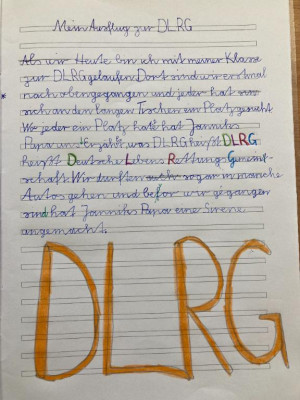 Mein Ausflug zur DLRG
Als wir Heute bin ich mit meiner Klasse
zur DLRG gelaufen. Dort sind wir erstmal
nach oben gegangen und jeder hat
sich an den langen Tischen ein Platz gesucht
Wo jeder ein Platz hate hat Jannikes
Papa uns Erzählt was DLRG heißt DLRG
heißt Deutsche Lebens Rettungs Gemeinf-
schaft. Wir durften auch sogar in manche
Autos gehen und befor wir gegangen
sind hat Jannikes Papa eine Sirene
angemacht.
DLRG